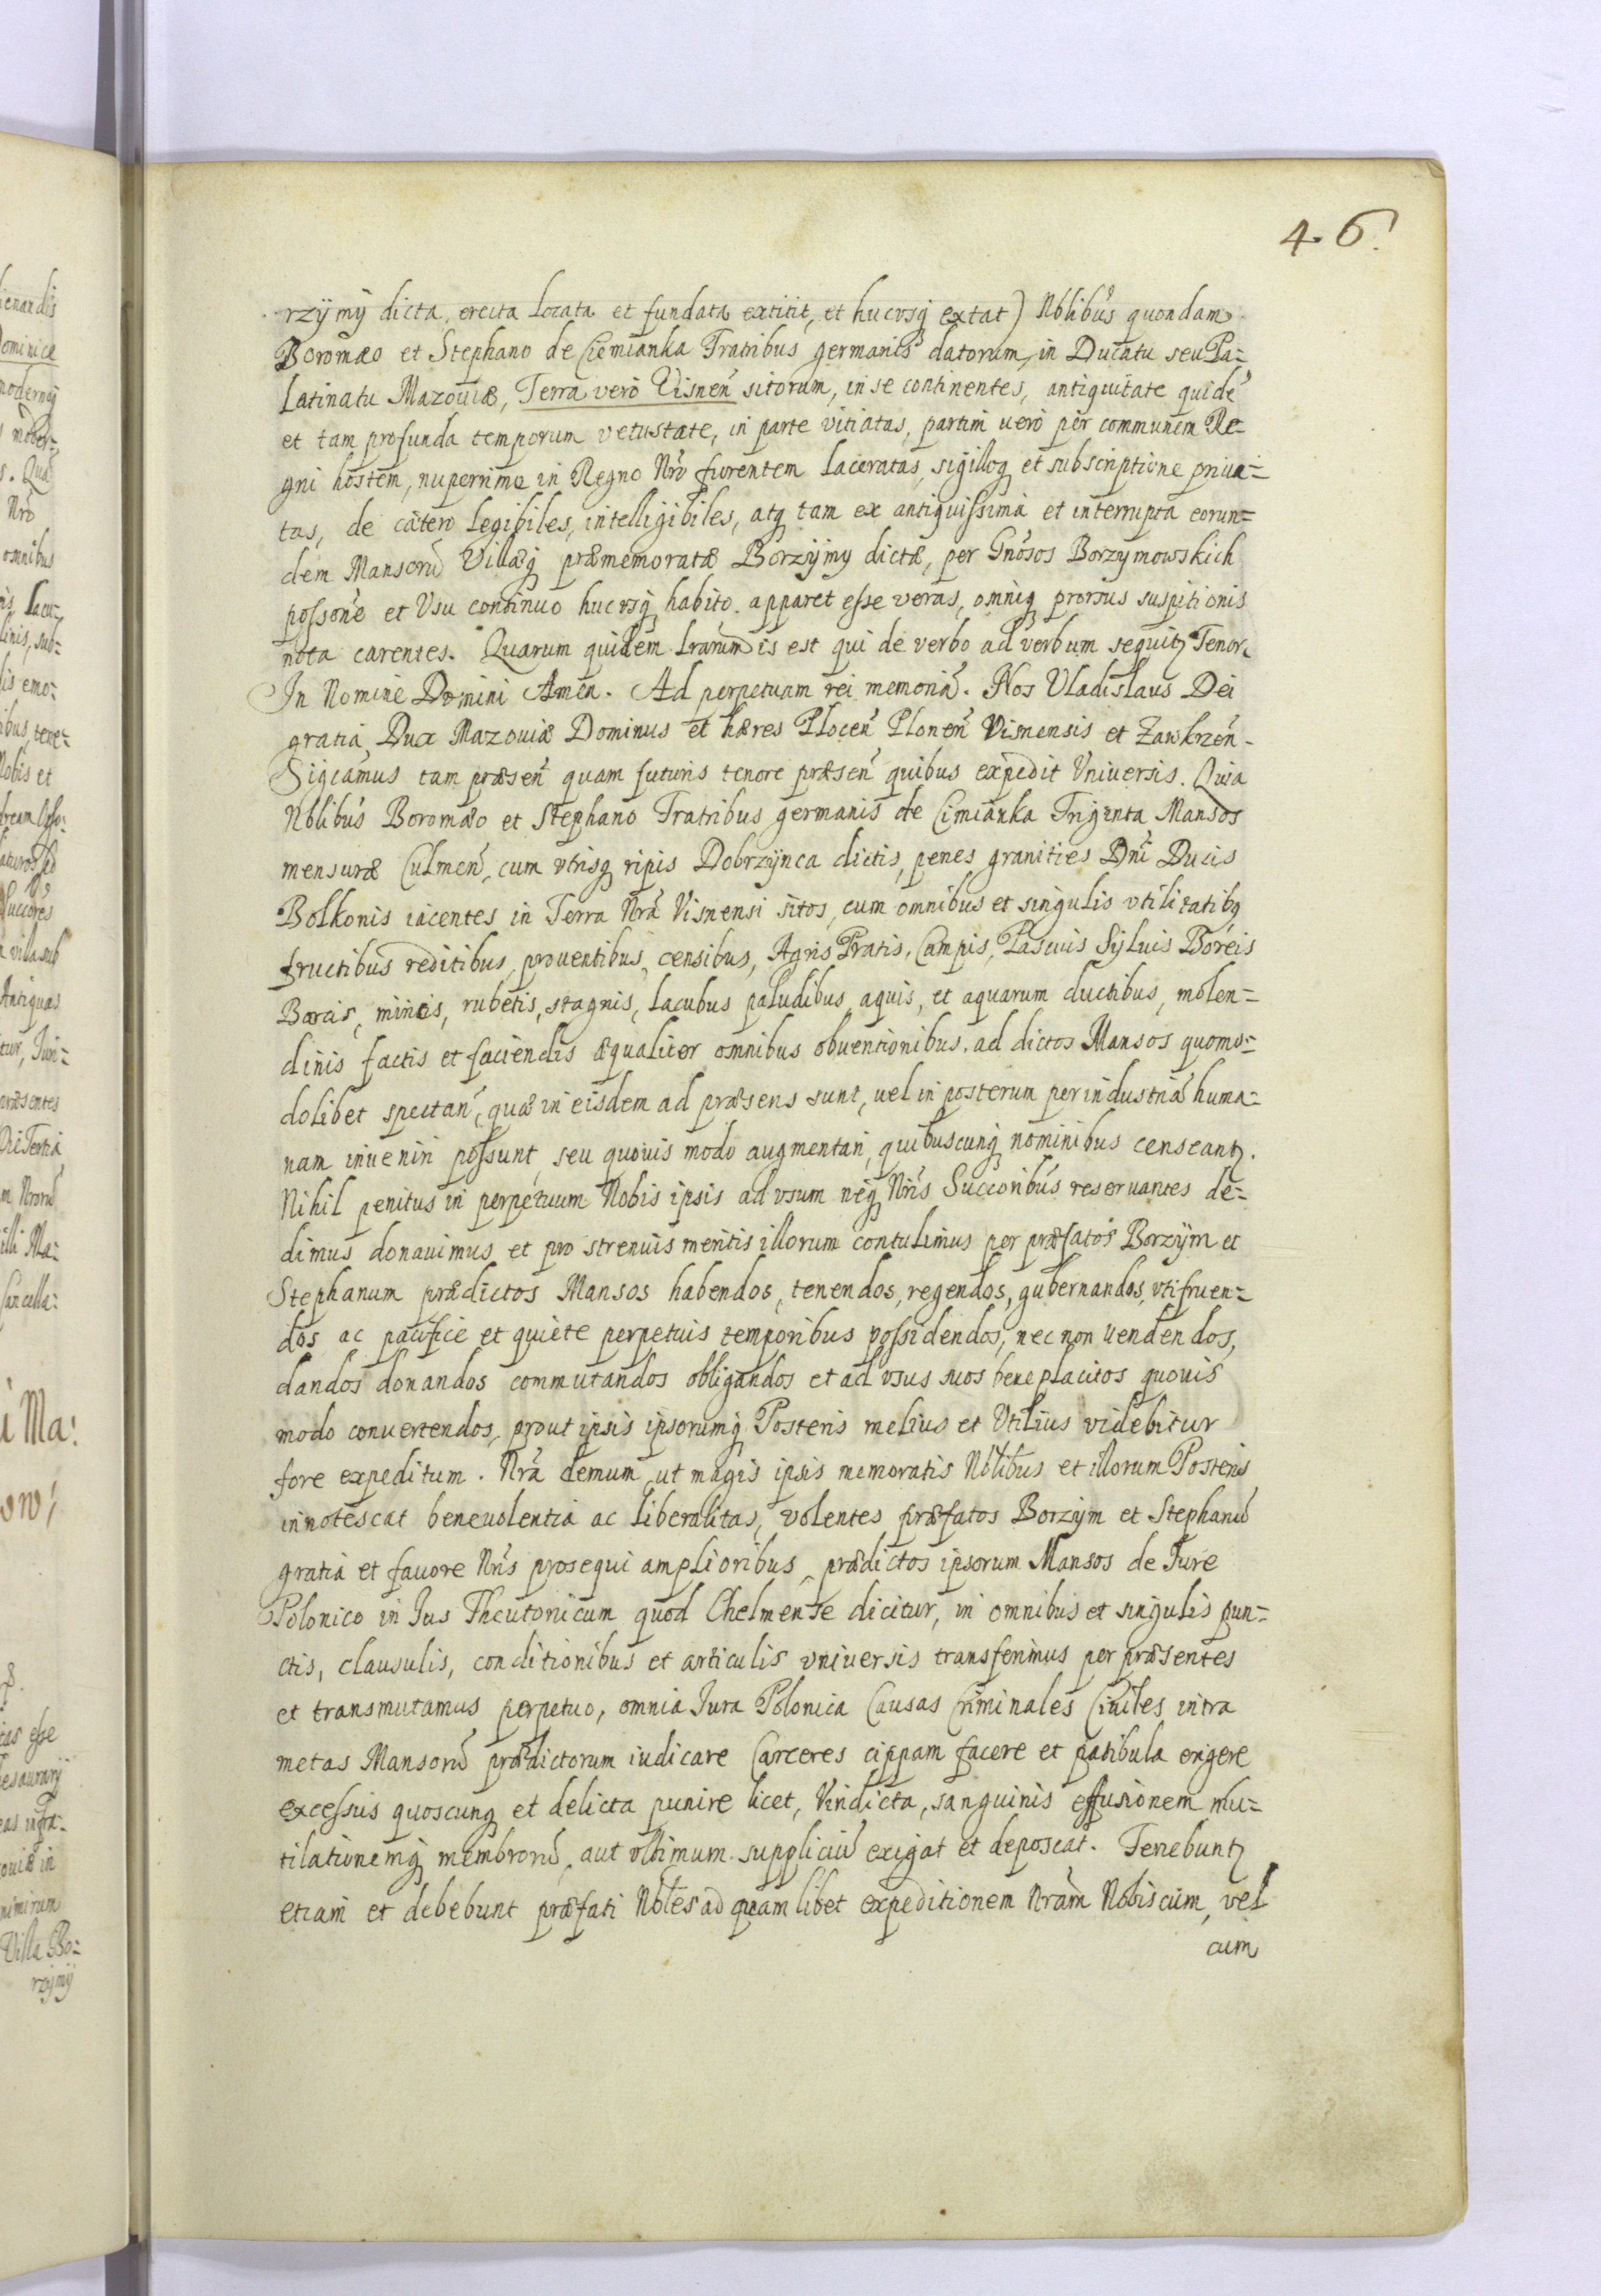 46.
rzÿmÿ dicta, erecta locata et fundata extitit, et hucusq́ extat) Nblibus quondam
Boromæo et Stephano de Ciemianka Fratribus germanis datorum, in Ducatu seu Pa=
latinatu Mazouiæ, Terra vero Visnen̄ sitorum, in se continentes, antiquitate quidē
et tam profunda temporum vetustate, in parte vitiatas, partim uero per communem Re=
gni hostem, nuperrime in Regno Nr̄o furentem laceratas, sigilloq́ et subscriptione priua=
tas, de cætero legibiles, intelligibiles, atq́ tam ex antiquissima et interrupta eorun=
dem Mansorū Villæq́ præmemoratæ Borzÿmy dictæ, per Gn̄osos Borzymowskich
possone et Vsu continuo hucvsq́ habito apparet esse veras, omniq́ prorsus suspitionis
nota carentes. Quarum quidem lrarum is est qui de verbo ad verbum sequitꝫ Tenor.
In Nomine Domini Amen. Ad perpetuam rei memoriā. Nos Vladislaus Dei
gratia Dux Mazouiæ Dominus et hæres Plocen̄ Plonen̄ Visnensis et Zawkrzen̄.
Sigcamus tam præsen̄ quam futuris tenore præsen̄ quibus expedit Vniuersis. Quia
Nblibus Boromæo et Stephano Fratribus germanis de Cimianka Triginta Mansos
mensuræ Culmen̄, cum vtrisq́ ripis Dobrzÿnca dictis, penes granities Dn̄i Ducis
Bolkonis iacentes in Terra Nr̄a Visnensi sitos, cum omnibus et singulis vtilitatibq́
fructibus reditibus, prouentibus, censibus, Agris Pratis, Campis, Pascuis Syluis Boreis
Borcis, mineis, rubetis, stagnis, lacubus paludibus, aquis, et aquarum ductibus, molen=
dinis factis et faciendis æqualiter omnibus obuentionibus, ad dictos Mansos quomo=
dolibet spectan̄, quæ in eisdem ad præsens sunt, uel in posterum per industriā huma=
nam inueniri possunt, seu quouis modo augmentari, quibuscunq́ nominibus censeantꝫ.
Nihil penitus in perpetuum Nobis ipsis ad vsum neq́ Nr̄is Succoribus reseruantes de=
dimus donauimus et pro strenuis meritis illorum contulimus per præfatos Borzÿm et
Stephanum prædictos Mansos habendos, tenendos, regendos, gubernandos, vtifruen=
dos ac pacifice et quiete perpetuis temporibus possidendos, nec non uendendos,
dandos donandos commutandos obligandos et ad vsus suos beneplacitos quouis
modo conuertendos, prout ipsis ipsorumq́ Posteris melius et Vtilius videbitur
fore expeditum. Nr̄a demum ut magis ipsis memoratis Nblibus et illorum Posteris
innotescat beneuolentia ac liberalitas, volentes præfatos Borzÿm et Stephanū
gratia et fauore Nr̄is prosequi amplioribus, prædictos ipsorum Mansos de Jure
Polonico in Jus Theutonicum quod Chelmense dicitur, in omnibus et singulis pun=
ctis, clausulis, conditionibus et articulis vniuersis transferimus per præsentes
et transmutamus perpetuo, omnia Jura Polonica Causas Criminales Ciuiles intra
metas Mansorū prædictorum iudicare Carceres cippam facere et patibula erigere
excessus quoscunq́ et delicta punire licet, Vindicta, sanguinis effusionem mu=
tilationemq́ membrorū, aut vltimum suppliciū exigat et deposcat. Tenebuntꝫ
etiam et debebunt præfati Nbles ad quamlibet expeditionem Nram Nobiscum, vel
cum